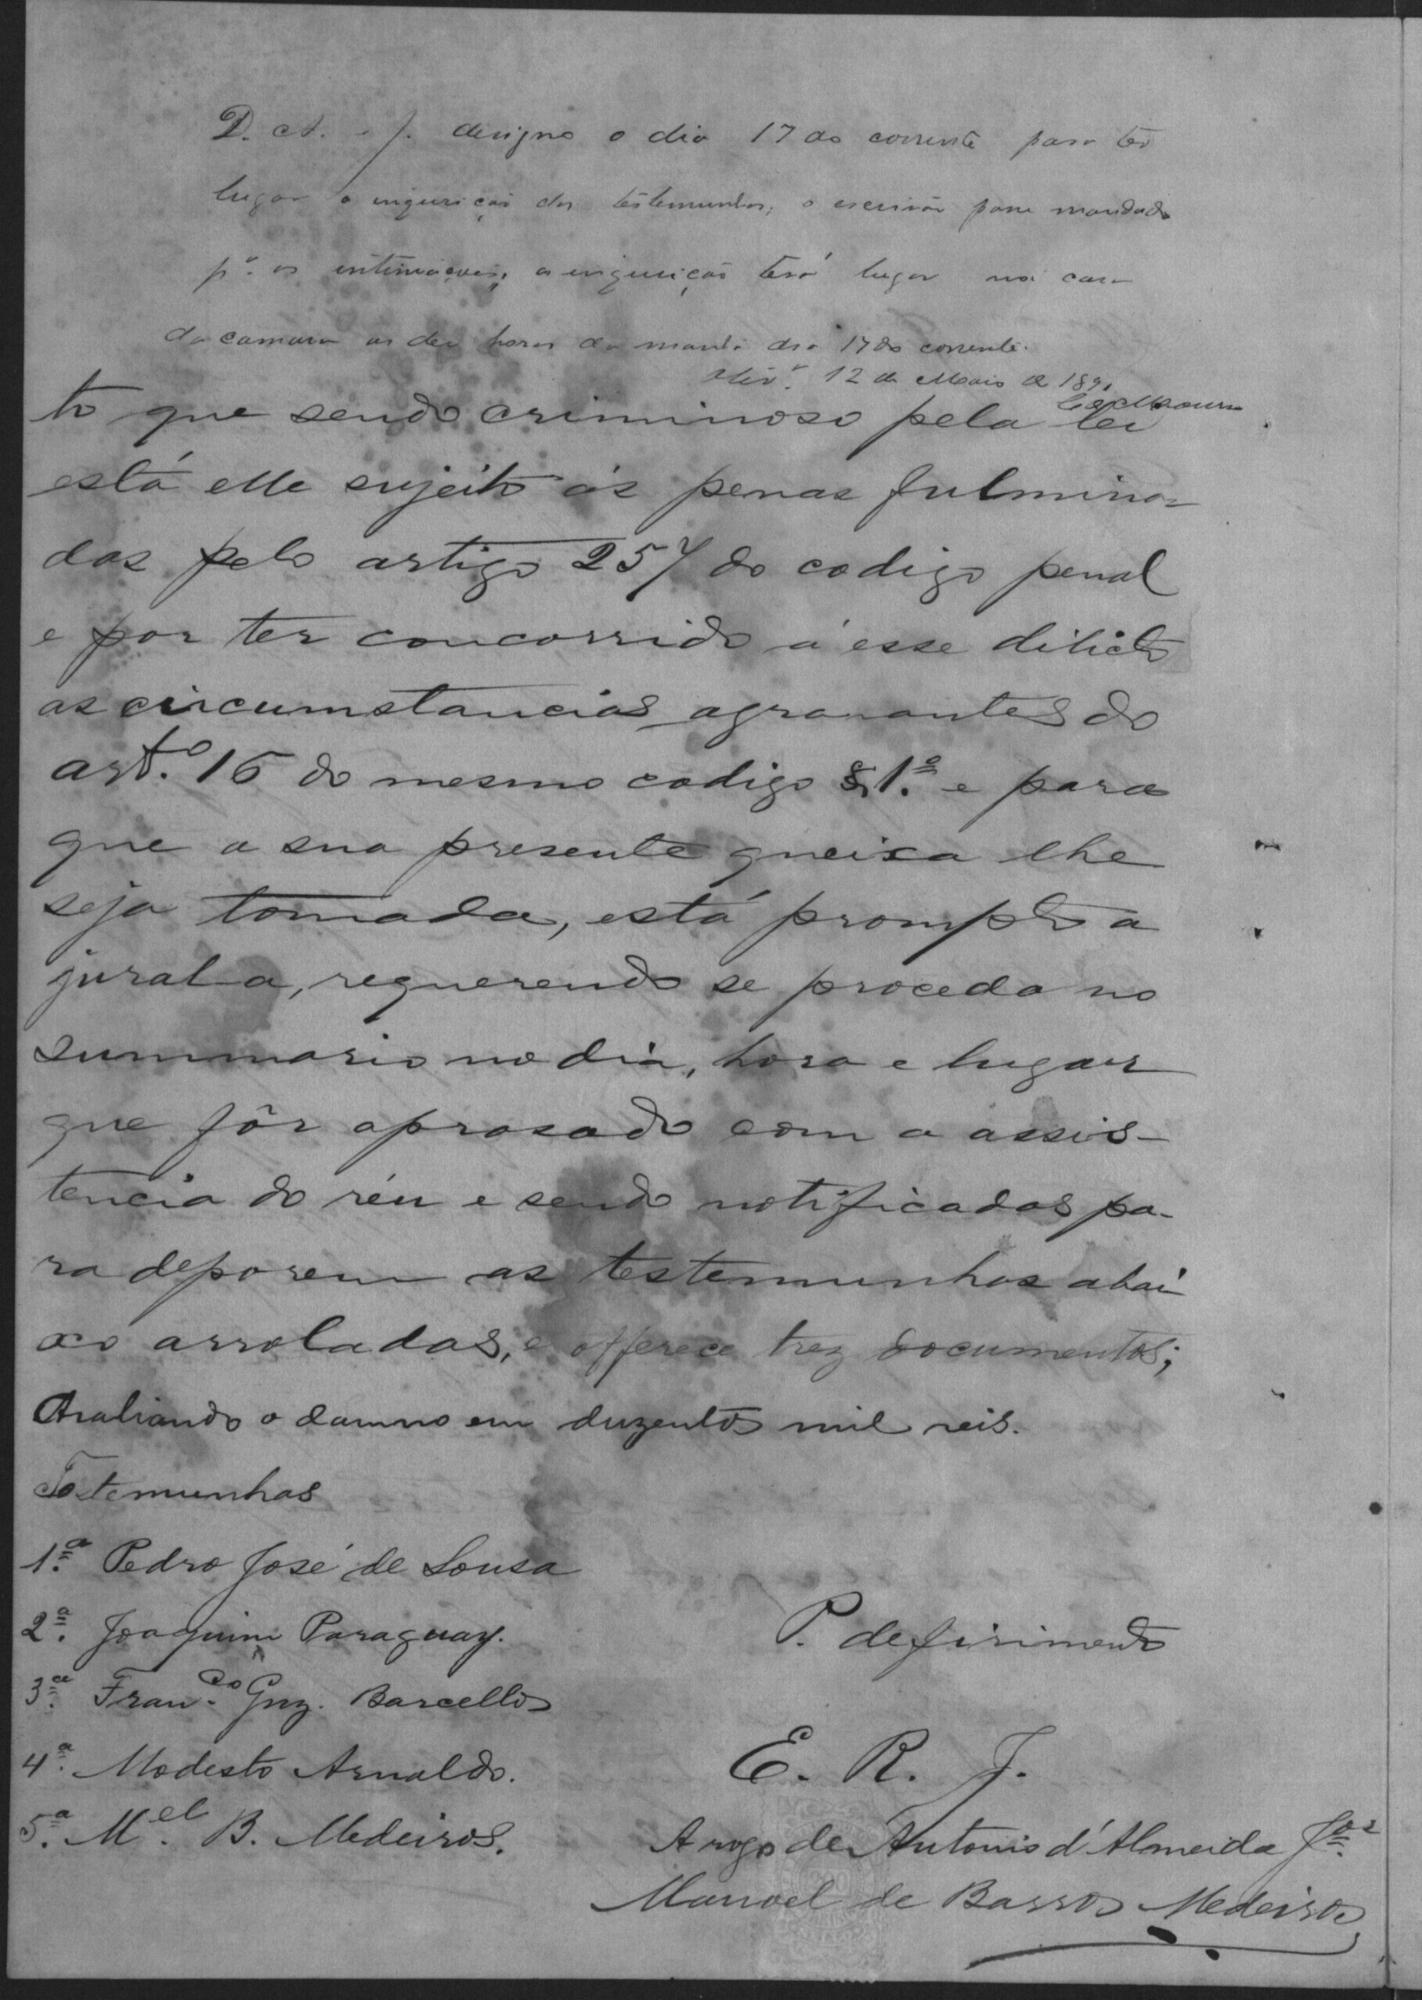 D. A. e J. designo o dia 17 do corrente para ter
lugar a inquirição das testemunhas, o escrivão passe mandado
pª. as intimações; a inquirição terá lugar na casa
da camara as dez horas da manhã dia 17 do corrente.
12 de Maio de 189
to que sendo criminoso pela lei
está elle sujeito ás penas fulmina-
das pelo artigo 257 do codigo penal
e por ter concorrido á esse dilicto
as circumstancias agravantes do
artº. 16 do mesmo codigo § 1.º e para
que a sua presente queixa lhe
seja tomada, está prompto a
jural-a, requerendo se proceda no
summario no dia, hora e lugar
que fôr aprasado com a assis-
tencia do réu e sendo notificadas pa-
ra deporem as testemunhas abai
xo arroladas, e offerece trez documentos;
Avaliando o damno em duzentos mil reis.
Testemunhas
1.ª Pedro José de Sousa
2.ª Joaquim Paraguay.
3.ª Fran.co Gnz. Barcellos
4.ª Modesto Arnaldo.
5.ª M.el B. Medeiros.
P. defirimento
E. R. J.
A rogo de Antonio d'Almeida
Manoel de Barros Medeiros